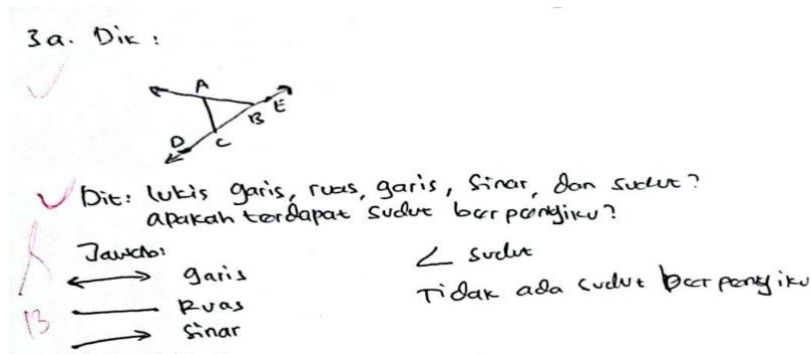 3a. Dik :
A
B
E
D
C
Dit: lukis garis, ruas, garis, sinar, dan sudut?
apakah terdapat sudut berpenyiku?
Jawab:
garis
Ruas
Sinar
∠ sudut
Tidak ada sudut berpenyiku
B